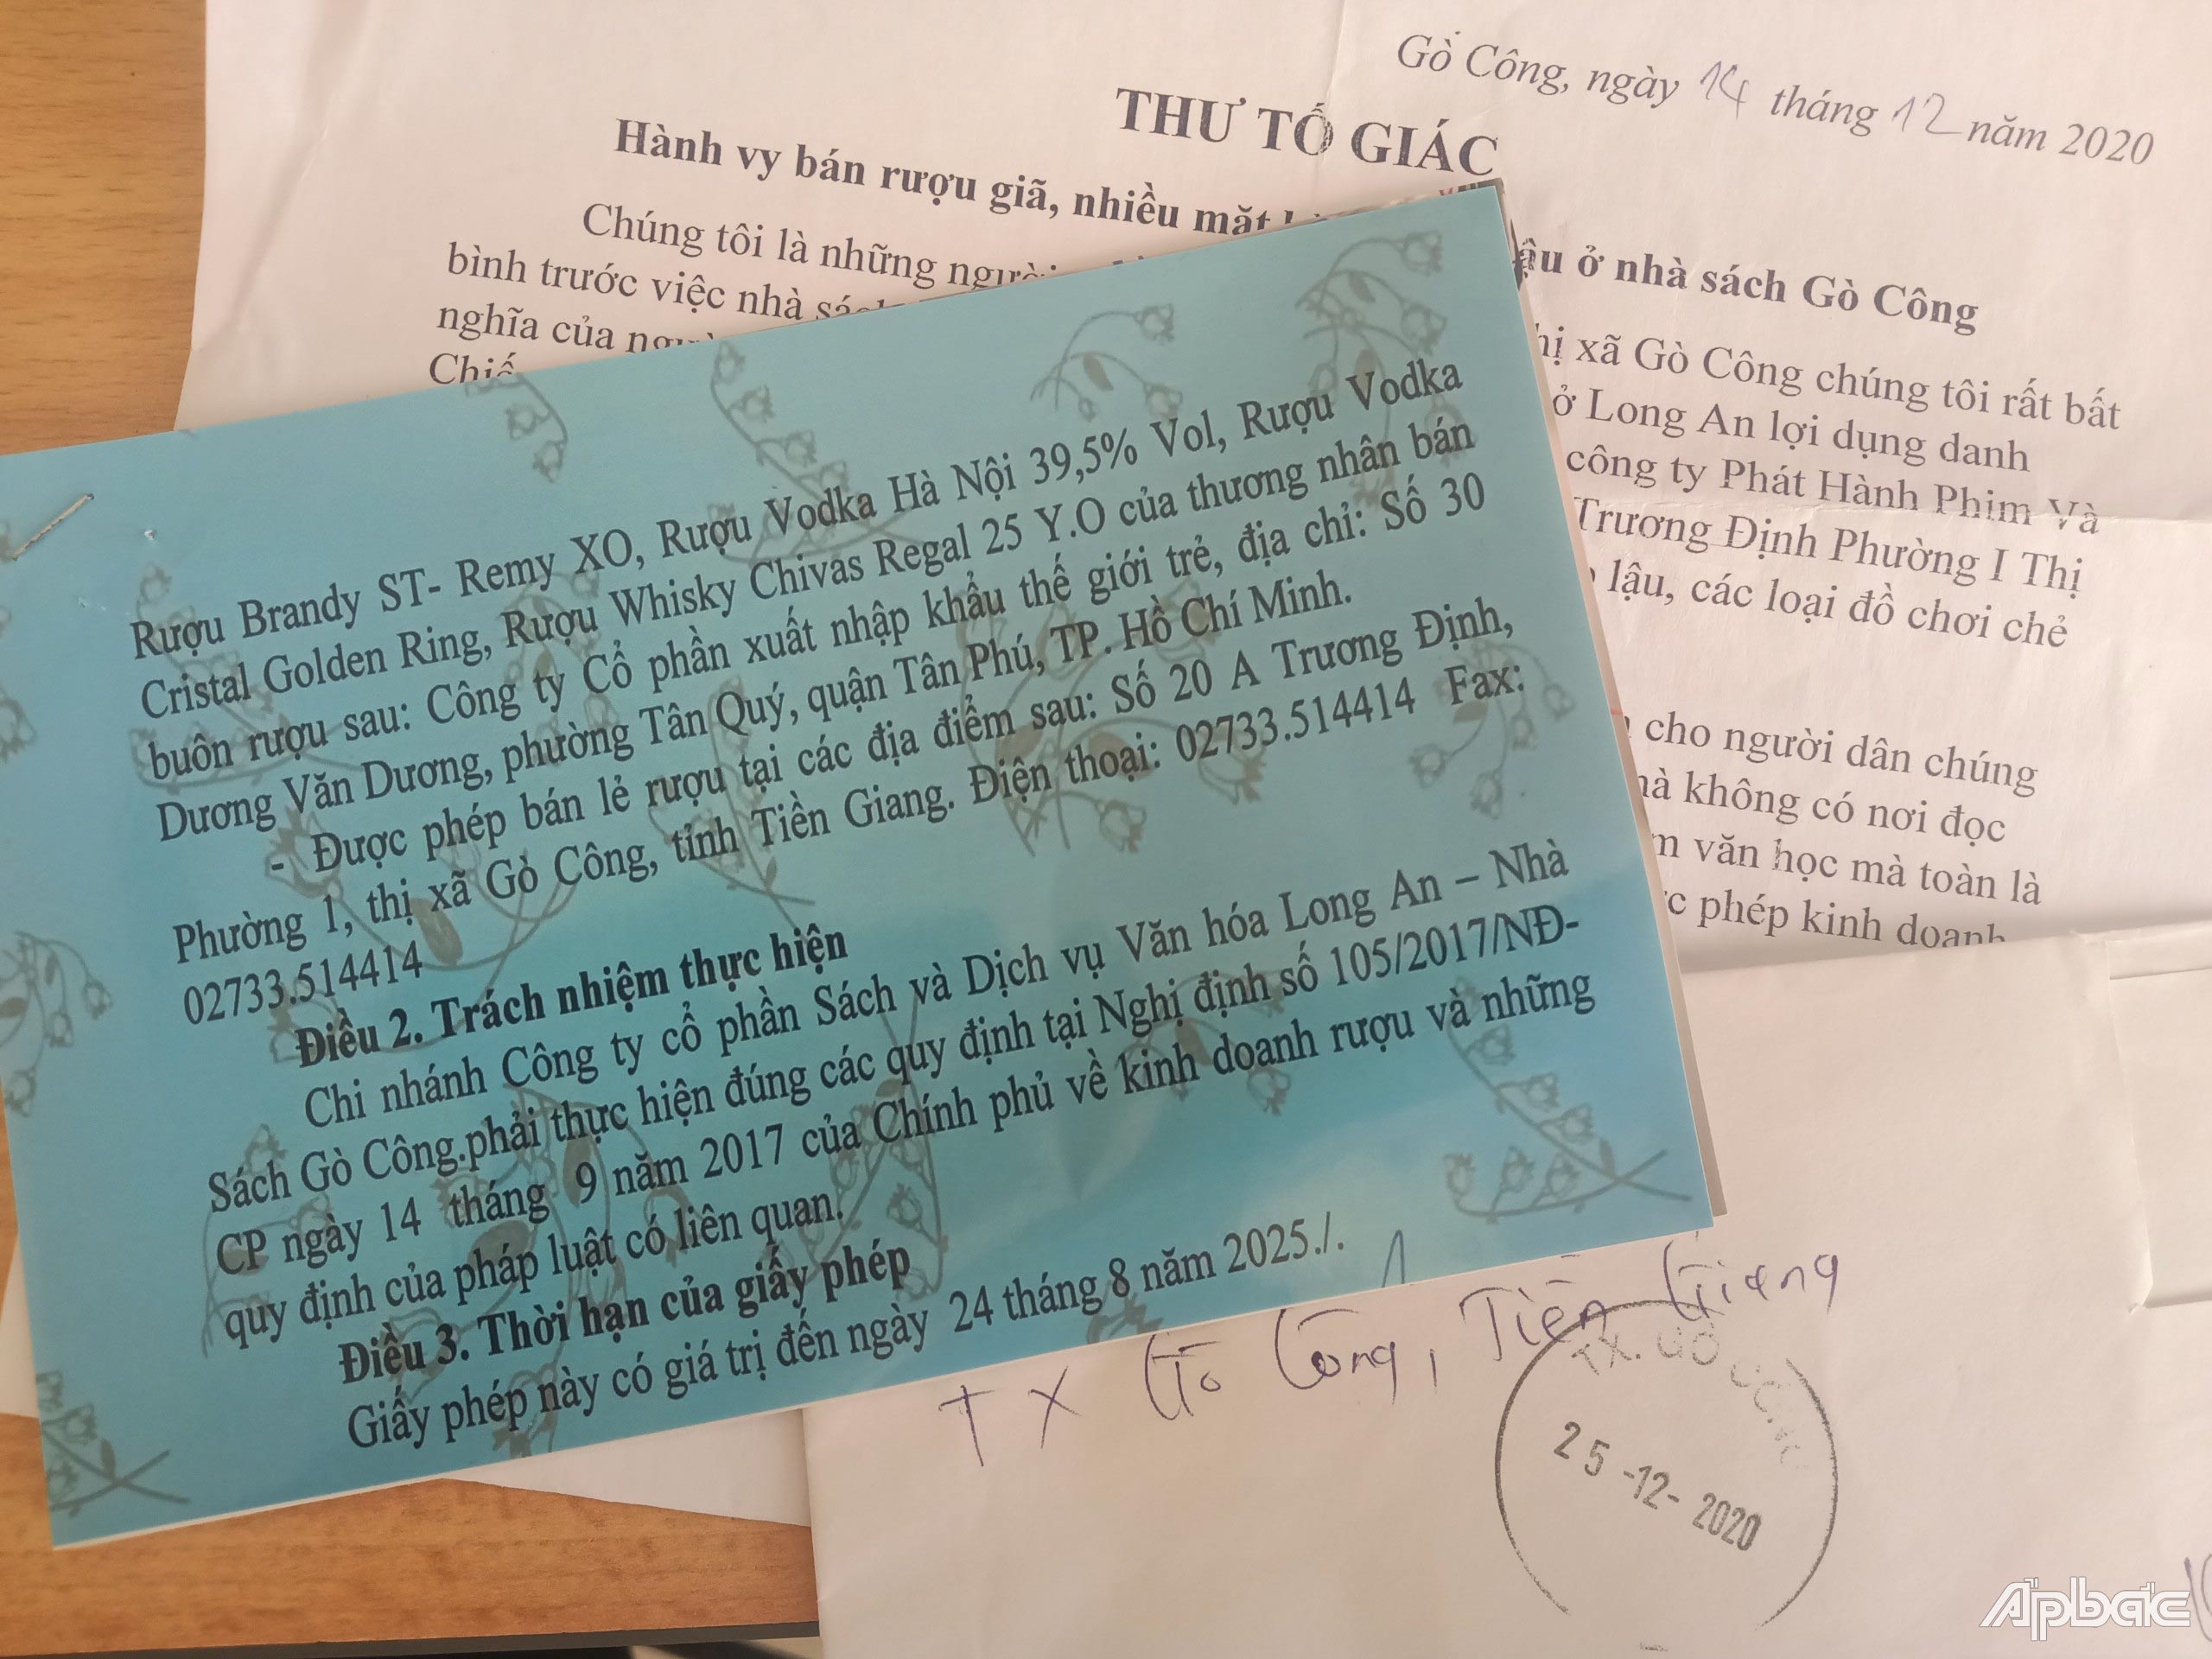 Gò Công, ngày 14 tháng 12 năm 2020
THƯ TỐ GIÁC
Hành vy bán rượu giã, nhiều mặt ậu ở nhà sách Gò Công
Chúng tôi là những người hị xã Gò Công chúng tôi rất bất
bình trước việc nhà sách ở Long An lợi dụng danh
nghĩa của công ty Phát Hành Phim Và
Trương Định Phường I Thị
lậu, các loại đồ chơi chẻ
cho người dân chúng
mà không có nơi đọc
văn học mà toàn là
phép kinh doanh
Rượu Brandy ST- Remy XO, Rượu Vodka Hà Nội 39,5% Vol, Rượu Vodka
Cristal Golden Ring, Rượu Whisky Chivas Regal 25 Y.O của thương nhân bán
buôn rượu sau: Công ty Cổ phần xuất nhập khẩu thế giới trẻ, địa chỉ: Số 30
Dương Văn Dương, phường Tân Quý, quận Tân Phú, TP. Hồ Chí Minh.
- Được phép bán lẻ rượu tại các địa điểm sau: Số 20 A Trương Định,
Phường 1, thị xã Gò Công, tỉnh Tiền Giang. Điện thoại: 02733.514414 Fax:
02733.514414
Điều 2. Trách nhiệm thực hiện
Chi nhánh Công ty cổ phần Sách và Dịch vụ Văn hóa Long An – Nhà
Sách Gò Công.phải thực hiện đúng các quy định tại Nghị định số 105/2017/NĐ-
CP ngày 14 tháng 9 năm 2017 của Chính phủ về kinh doanh rượu và những
quy định của pháp luật có liên quan.
Điều 3. Thời hạn của giấy phép
Giấy phép này có giá trị đến ngày 24 tháng 8 năm 2025./.
TX Gò Công, Tiền Giang
TX. GÒ CÔNG
25-12-2020
Apbac